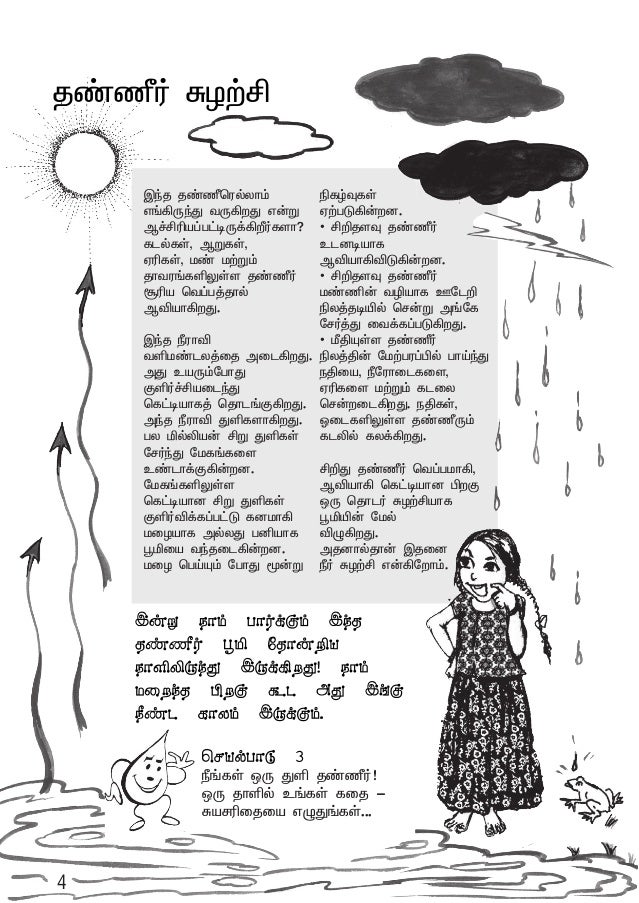 தண்ணீர் சுழற்சி
இந்த தண்ணீரெல்லாம்
எங்கிருந்து வருகிறது என்று
ஆச்சிரியப்பட்டிருக்கிறீர்களா?
கடல்கள், ஆறுகள்,
ஏரிகள், மண் மற்றும்
தாவரங்களிலுள்ள தண்ணீர்
சூரிய வெப்பத்தால்
ஆவியாகிறது.
இந்த நீராவி
வளிமண்டலத்தை அடைகிறது.
அது உயரும்போது
குளிர்ச்சியடைந்து
கெட்டியாகத் தொடங்குகிறது.
அந்த நீராவி துளிகளாகிறது.
பல மில்லியன் சிறு துளிகள்
சேர்ந்து மேகங்களை
உண்டாக்குகின்றன.
மேகங்களிலுள்ள
கெட்டியான சிறு துளிகள்
குளிர்விக்கப்பட்டு கனமாகி
மழையாக அல்லது பனியாக
பூமியை வந்தடைகின்றன.
மழை பெய்யும் போது மூன்று
நிகழ்வுகள்
ஏற்படுகின்றன.
• சிறிதளவு தண்ணீர்
உடனடியாக
ஆவியாகிவிடுகின்றன.
• சிறிதளவு தண்ணீர்
மண்ணின் வழியாக ஊடேறி
நிலத்தடியில் சென்று அங்கே
சேர்த்து வைக்கப்படுகிறது.
• மீதியுள்ள தண்ணீர்
நிலத்தின் மேற்பரப்பில் பாய்ந்து
நதியை, நீரோடைகளை,
ஏரிகளை மற்றும் கடலை
சென்றடைகிறது. நதிகள்,
ஓடைகளிலுள்ள தண்ணீரும்
கடலில் கலக்கிறது.
சிறிது தண்ணீர் வெப்பமாகி,
ஆவியாகி கெட்டியான பிறகு
ஒரு தொடர் சுழற்சியாக
பூமியின் மேல்
விழுகிறது.
அதனால்தான் இதனை
நீர் சுழற்சி என்கிறோம்.
இன்று நாம் பார்க்கும் இந்த
தண்ணீர் பூமி தோன்றிய
நாளிலிருந்து இருக்கிறது! நாம்
மறைந்த பிறகு கூட அது இங்கு
நீண்ட காலம் இருக்கும்.
செயல்பாடு 3
நீங்கள் ஒரு துளி தண்ணீர்!
ஒரு தாளில் உங்கள் கதை –
சுயசரிதையை எழுதுங்கள்...
4